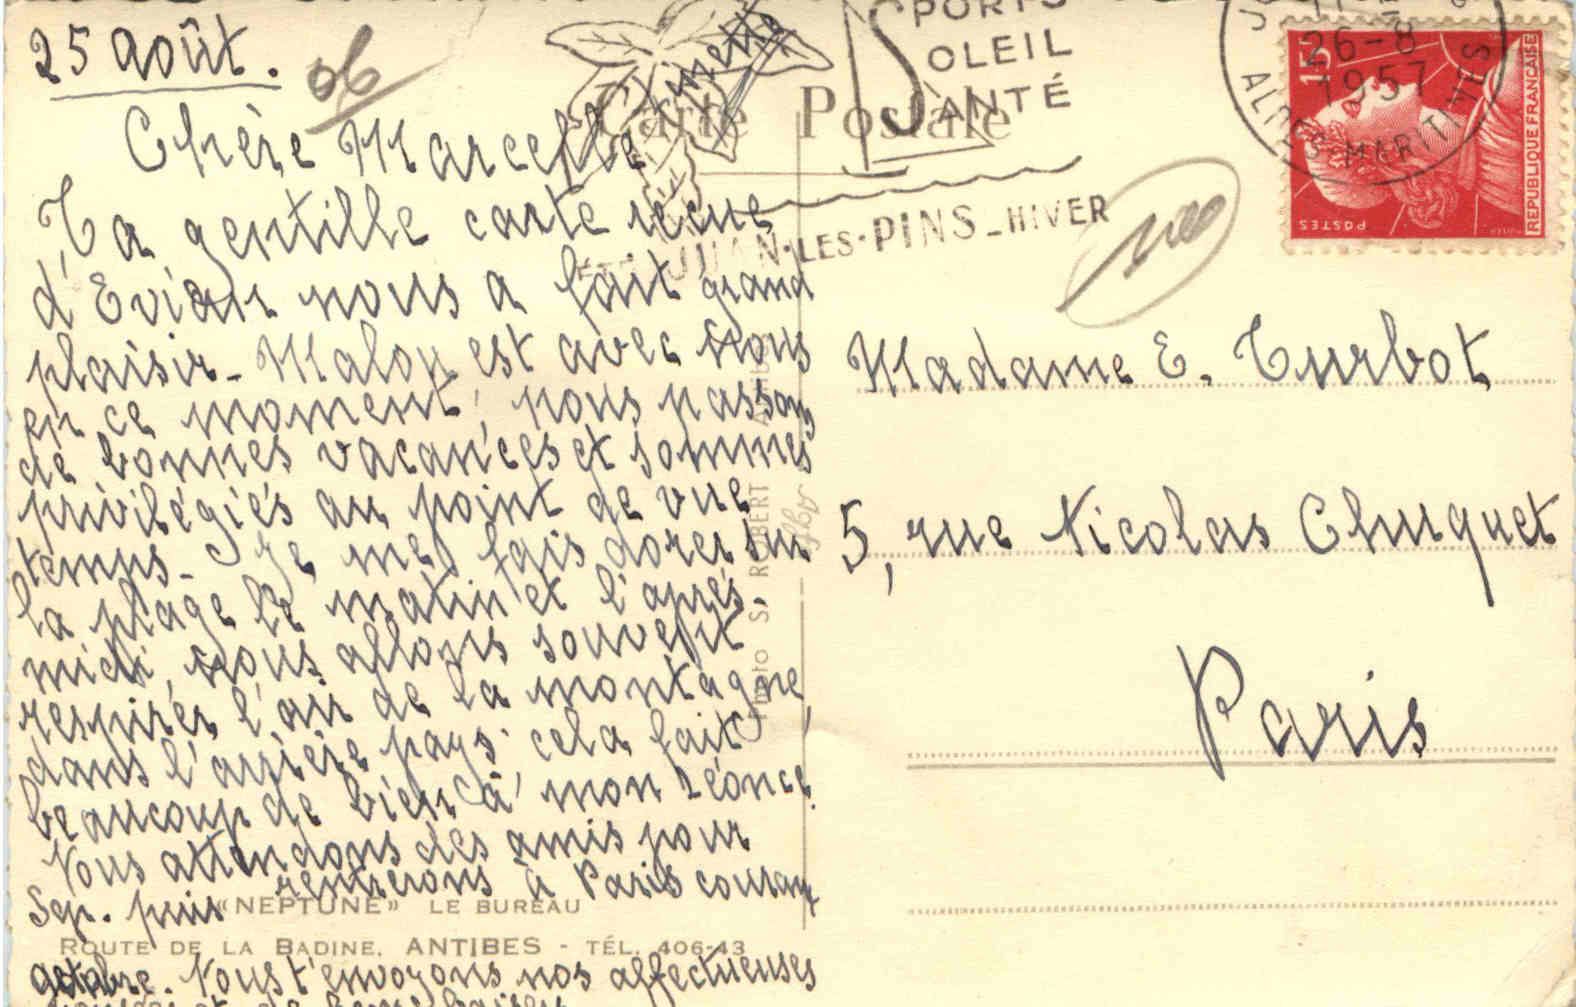 25 août.
06
Chère Marcelle
Ta gentille carte reçue
d'Evian nous a fait grand
plaisir_ Malou est avec nous
en ce moment, nous passons
de bonnes vacances et sommes
privilégiés au point de vue
temps_ Je me fais dorer sur
la plage le matin et l'après-
midi, nous allons souvent
respirer l'air de la montagne,
dans l'arrière pays. cela fait
beaucoup de bien à mon Léonce.
Nous attendons des amis pour
Sep. puis rentrerons à Paris courant
octobre. Nous t'envoyons nos affectueuses
et de bons baisers
«NEPTUNE» LE BUREAU
ROUTE DE LA BADINE, ANTIBES - TÉL. 406-43
Carte Postale
Photo S. ROBERT
SPORTS
SOLEIL
SANTÉ
JUAN·LES·PINS_HIVER
26-8
1957
ALPES-MARITIMES
15F
POSTES
REPUBLIQUE FRANÇAISE
Madame E. Turbot
5, rue Nicolas Chuquet
Paris